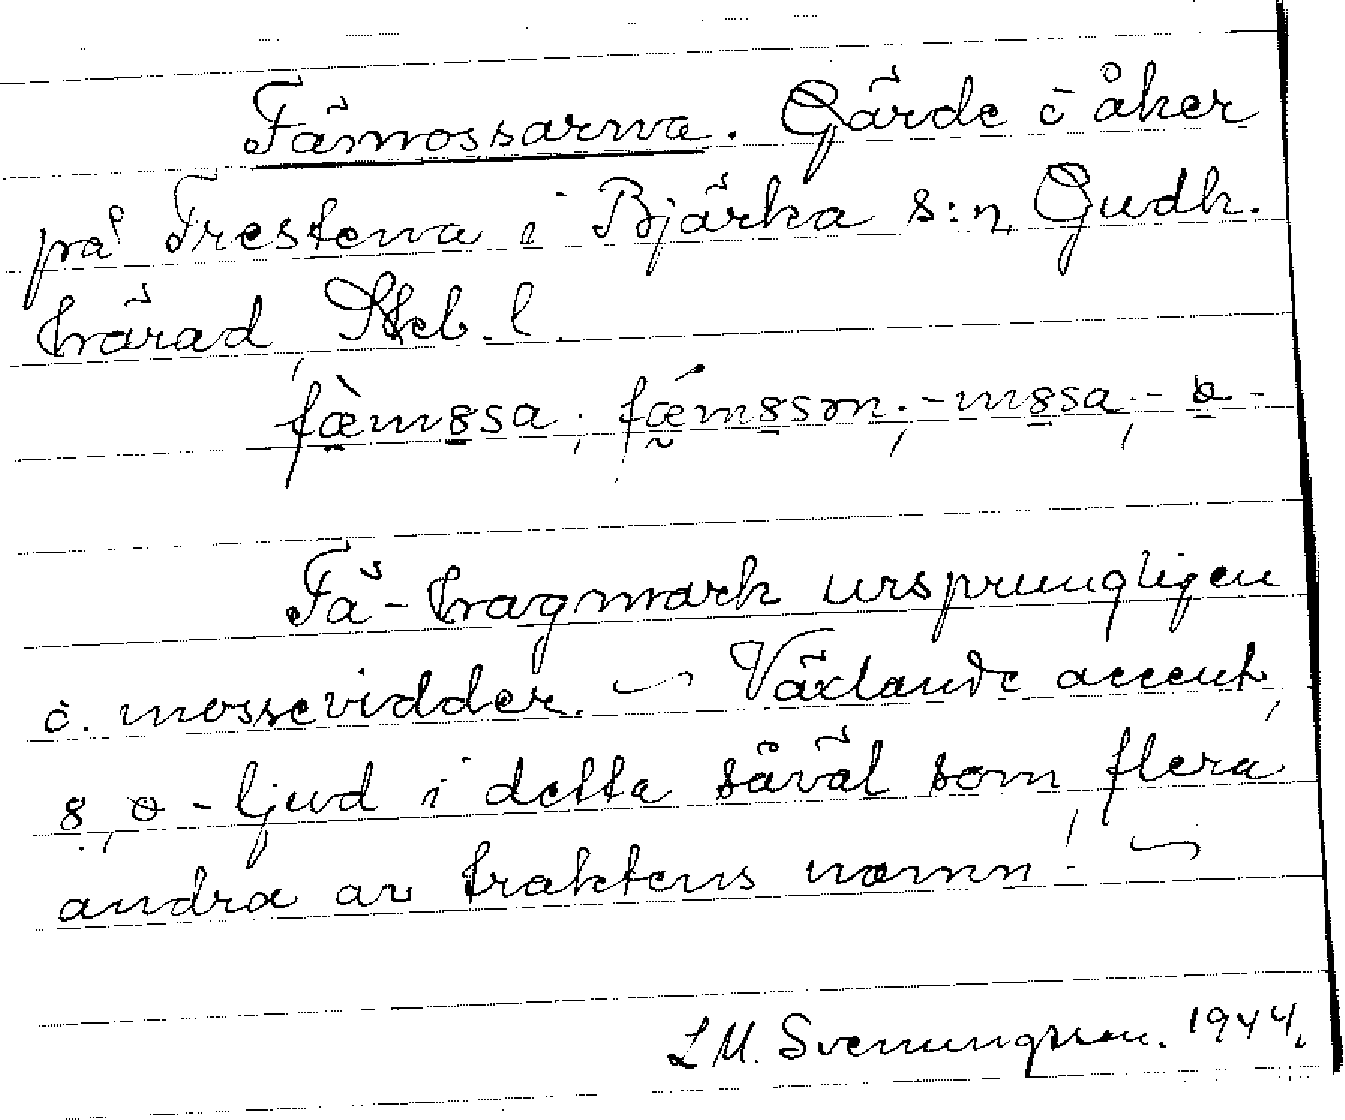 Fämossarna. Gärde o åker
på Trestena i Bjärka s:n, Gudh.
härad, Skb. l.
fæ̀mȣsa; fǽmȣsɷn; -mȣsa, -ɵ-
Fä-hagmark ursprungligen
o. mossevidder. ~ Växlande accent,
ȣ, ɵ-ljud i detta såväl som flera
andra av traktens namn! ~
L M. Svenungsson. 1944.